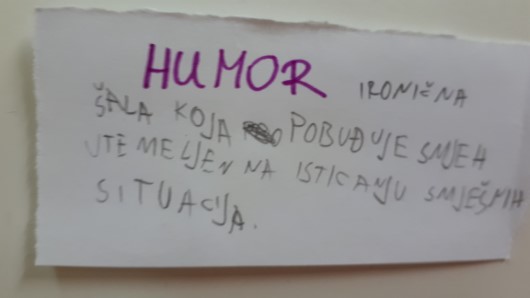 HUMOR IRONIČNA
ŠALA KOJA POBUĐUJE SMJEH
UTEMELJEN NA ISTICANJU SMJEŠNIH
SITUACIJA.